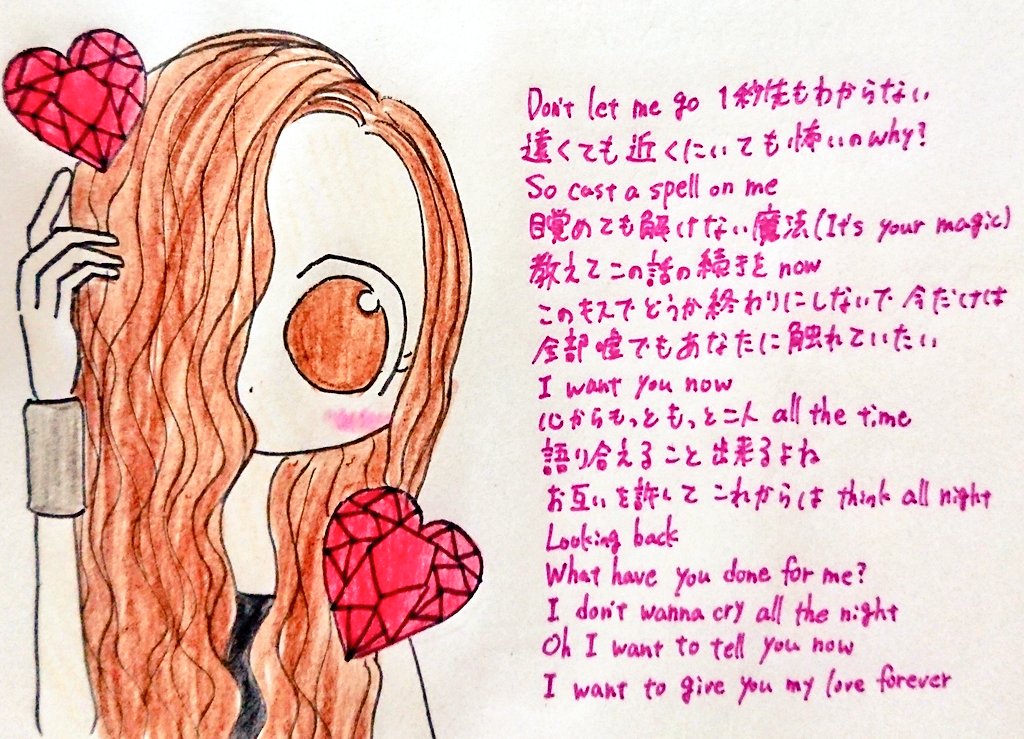 Don't let me go 1秒先もわからない
遠くても近くにいても怖いのwhy?
So cast a spell on me
目覚めても解けない魔法(It's your magic)
教えてこの話の続きを now
このキスでどうか終わりにしないで 今だけは
全部嘘でもあなたに触れていたい
I want you now
心からもっともっと二人 all the time
語り合えること出来るよね
お互いを許して これからは think all night
Looking back
What have you done for me?
I don't wanna cry all the night
Oh I want to tell you now
I want to give you my love forever